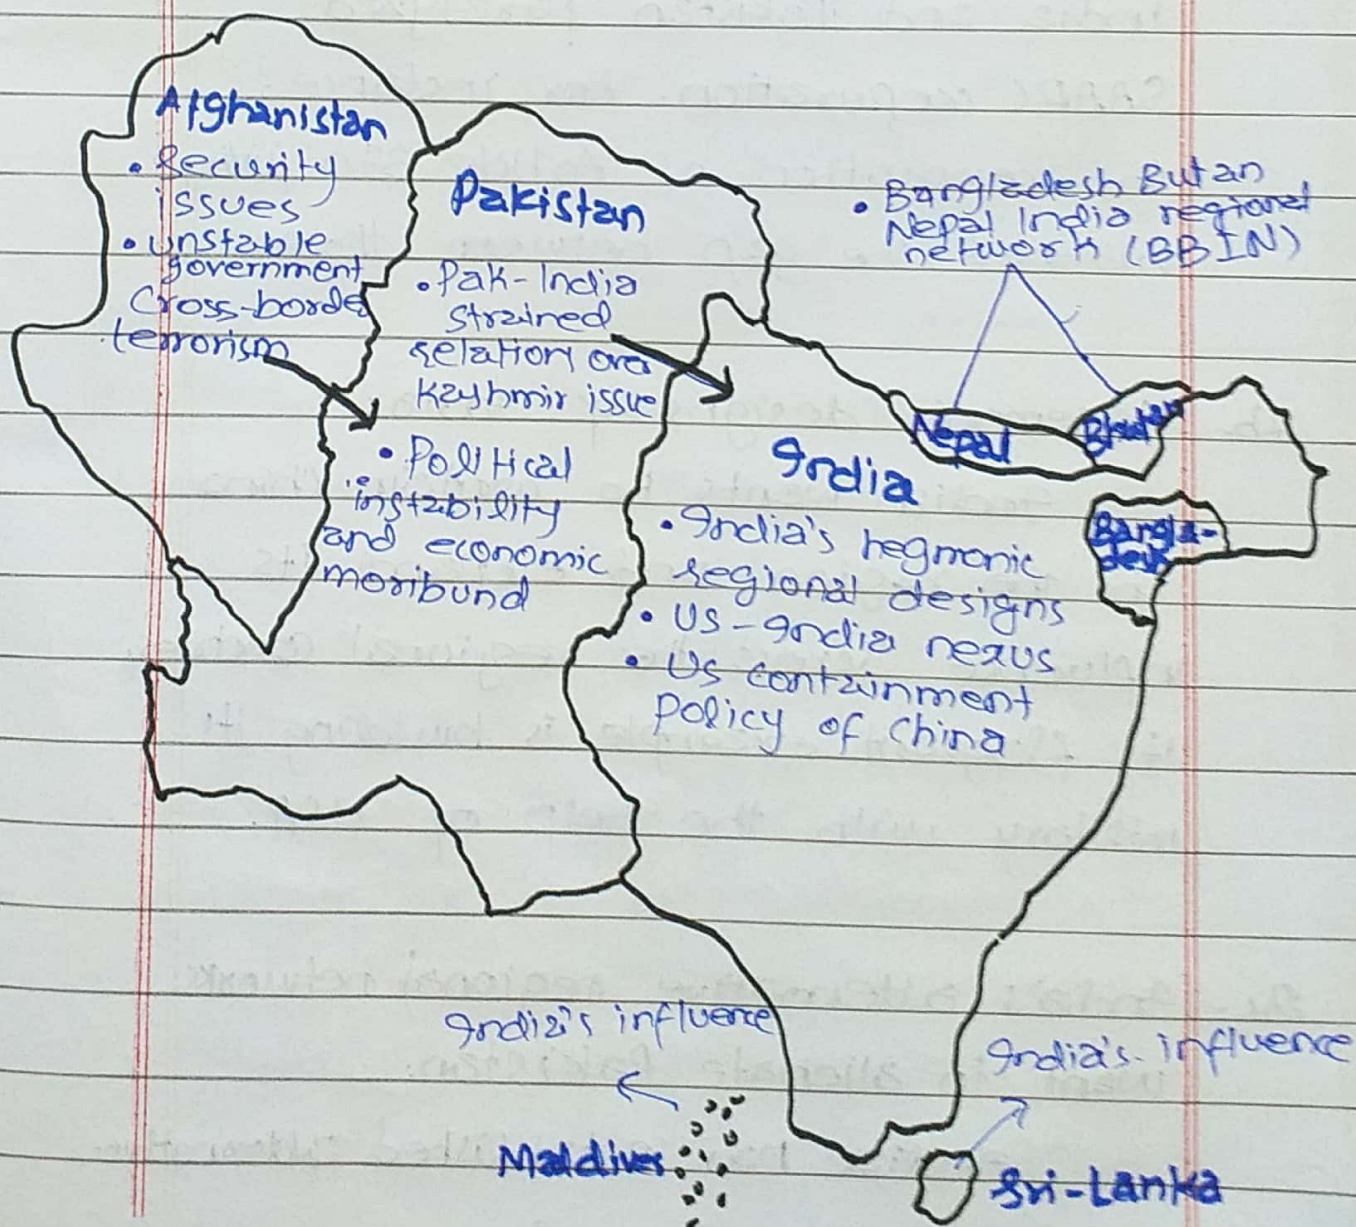 Afghanistan
• Security
issues
• unstable
government
Cross-border
terrorism
Pakistan
• Pak-India
strained
relation over
Kashmir issue
• Political
instability
and economic
moribund
• Bangladesh Butan
Nepal India regional
network (BBIN)
Nepal
Bhutan
Bangla-
desh
India
• India's hegmonic
regional designs
• US-India nexus
• US containment
Policy of China
India's influence
India's influence
Maldives
Sri-Lanka